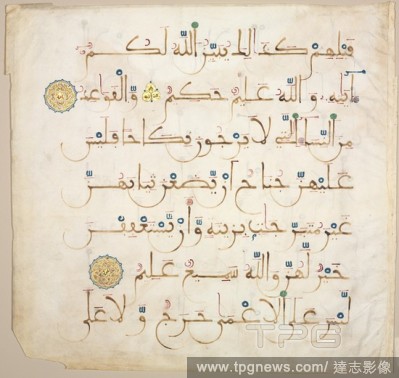 قبلهم كذلك يبين الله لكم
ءايته والله عليم حكيم والقواعد
من النساء التي لا يرجون نكاحا فليس
عليهن جناح أن يضعن ثيابهن
غير متبرجت بزينة وأن يستعففن
خير لهن والله سميع عليم
ليس على الأعمى حرج ولا على
TPG
www.tpgnews.com / 達志影像